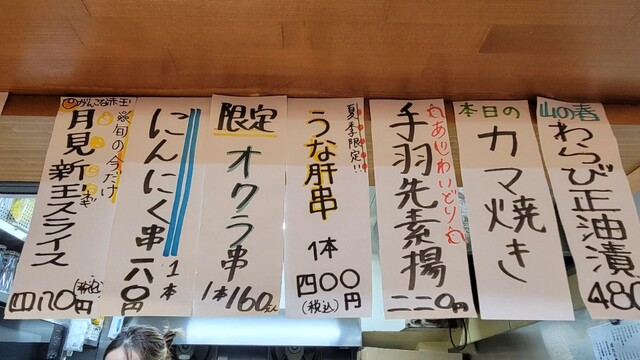 山の春
わらび正油漬
480
本日の
カマ焼き
あじわいどり
手羽先素揚
二二〇円
夏季限定!!
うな肝串
1本
四〇〇円
(税込)
限定
オクラ串
1本160
にんにく串
1本
六〇円
がんこな赤玉
※旬の今だけ
月見新玉スライス
四百七〇円
(税込)